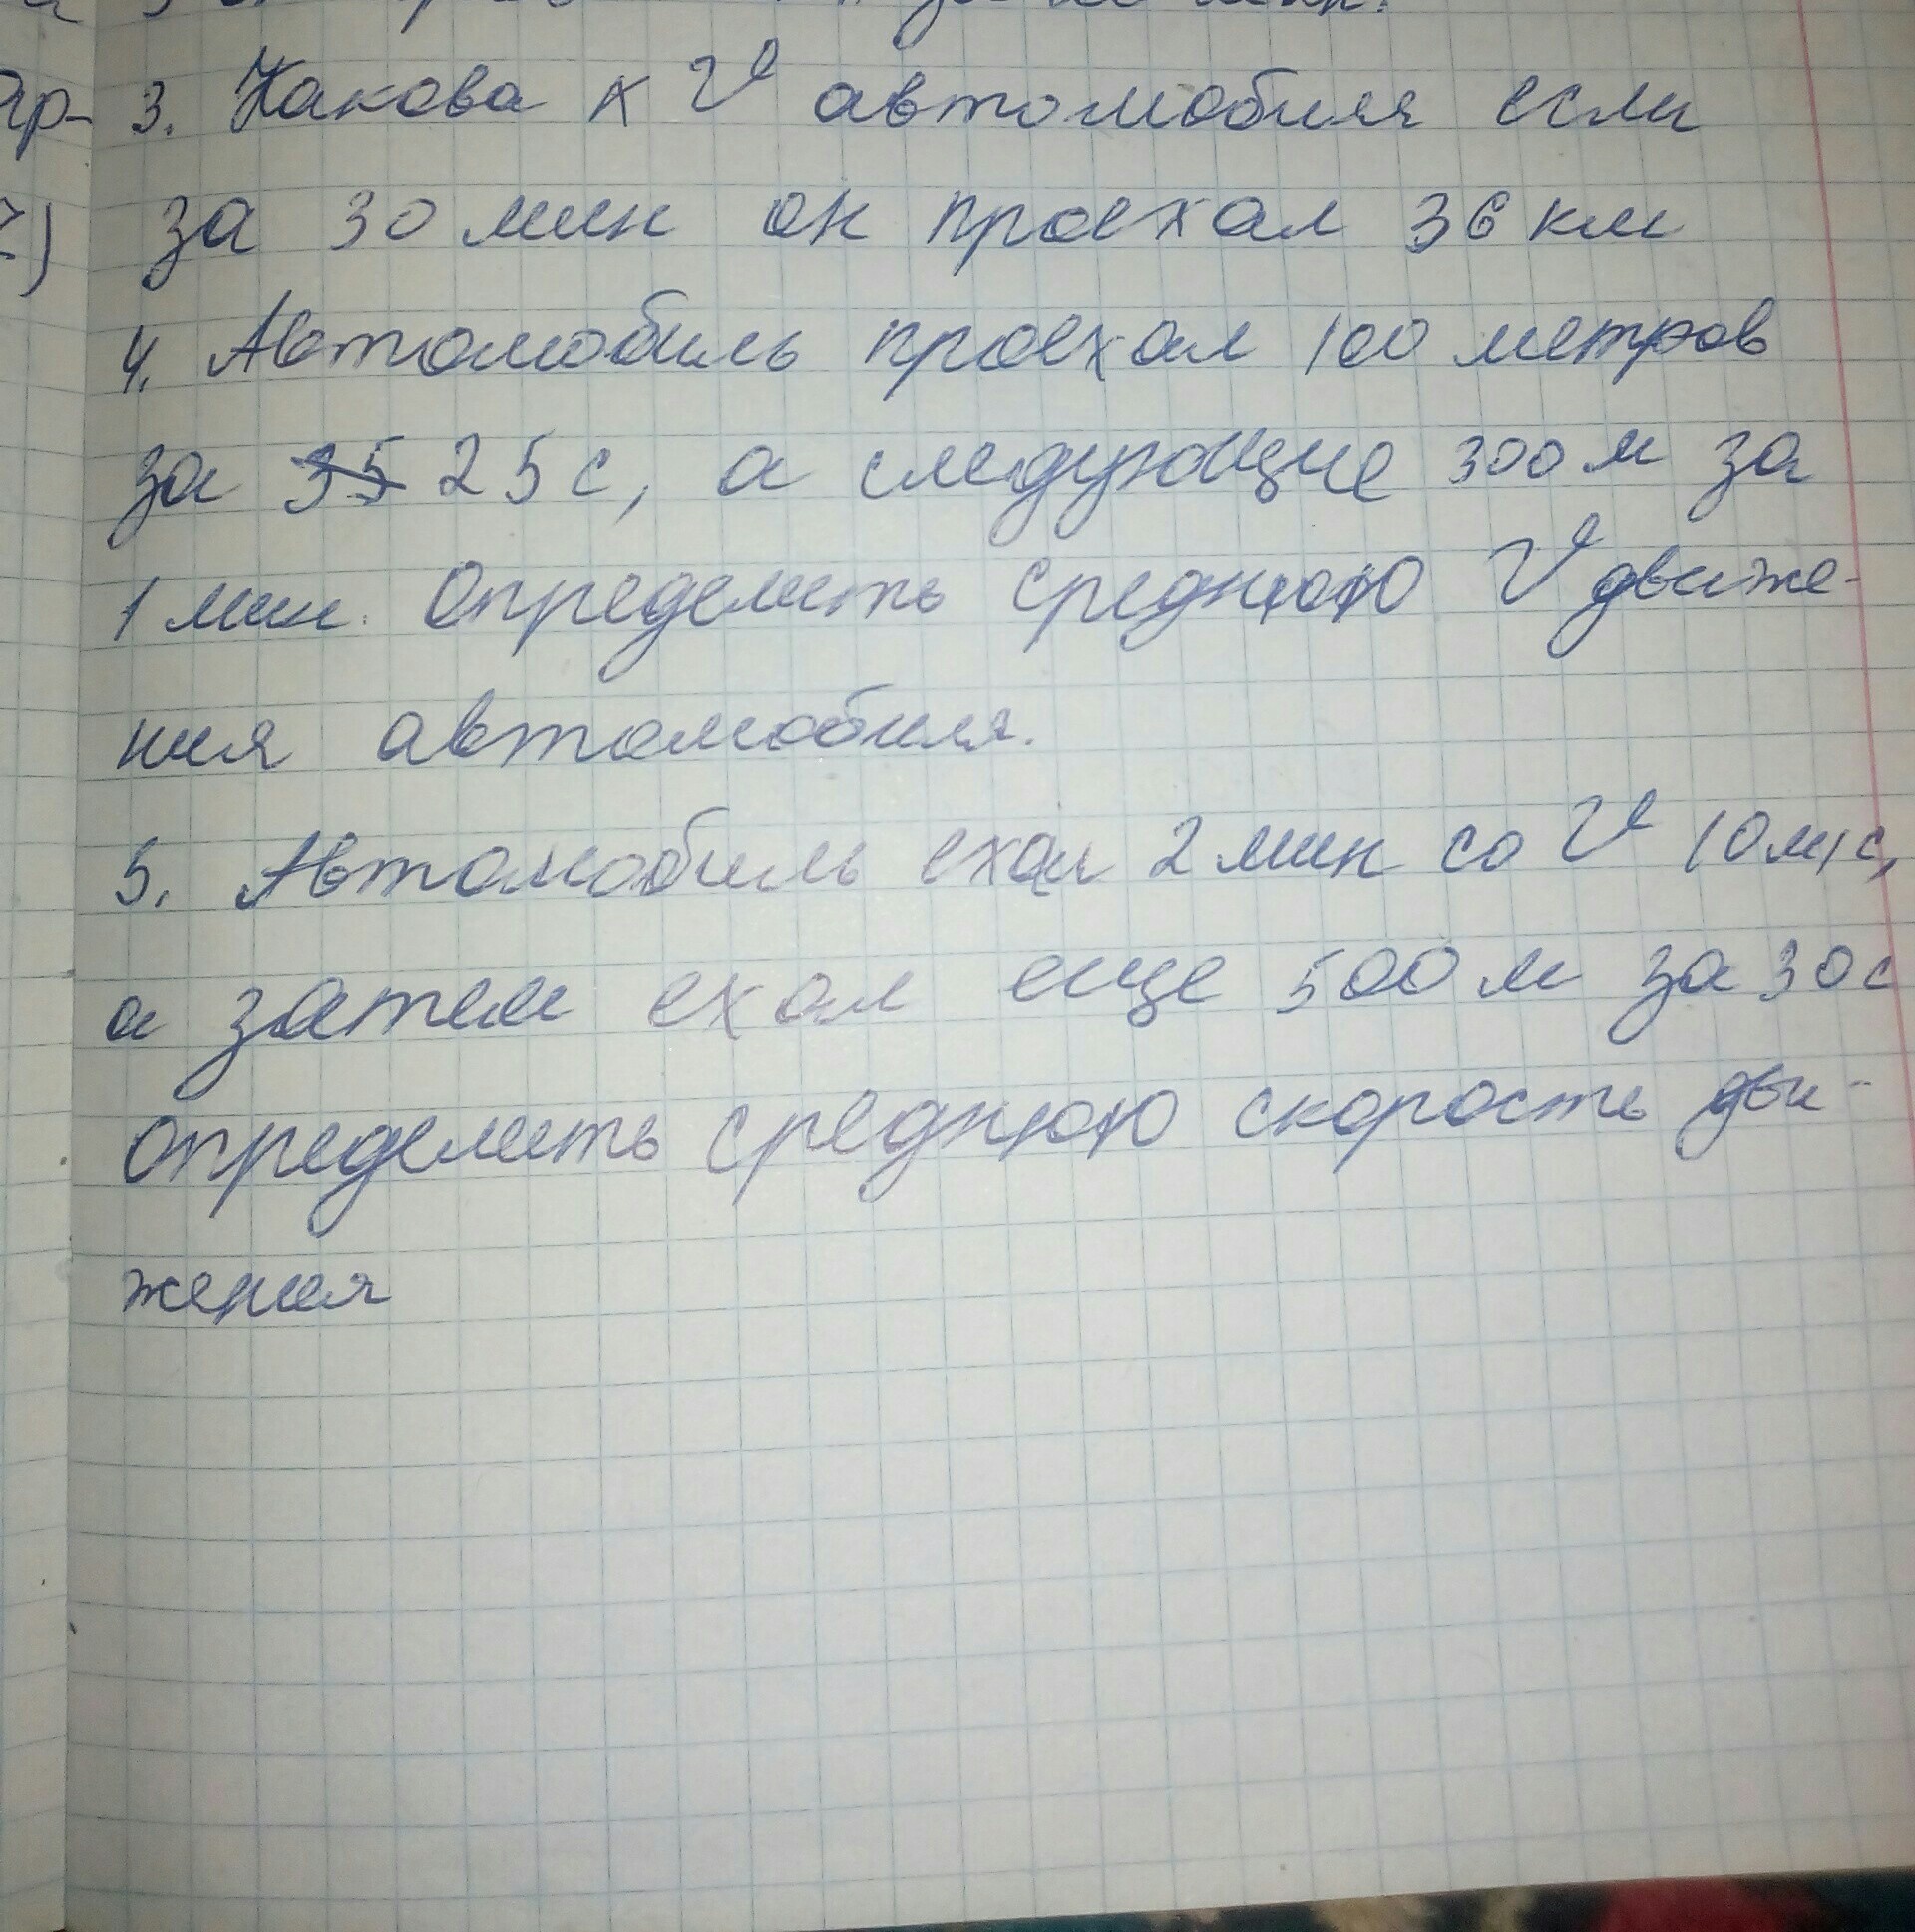 3. Какова к V автомобиля если
за 30 мин он проехал 36 км
4. Автомобиль проехал 100 метров
за 35 25 с, а следующие 300 м за
1 мин. Определить среднюю V движе-
ния автомобиля.
5. Автомобиль ехал 2 мин со V 10 м/с,
а затем ехал еще 500 м за 30 с
Определить среднюю скорость дви-
жения